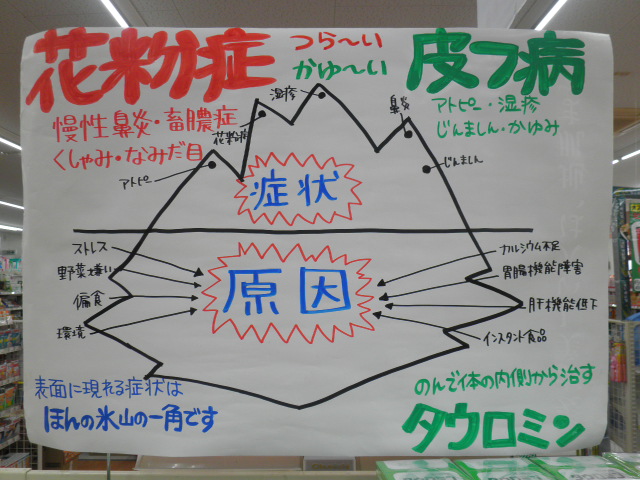 花粉症
つら〜い
かゆ〜い
皮フ病
慢性鼻炎・畜膿症
くしゃみ・なみだ目
アトピー・湿疹
じんましん・かゆみ
湿疹
花粉症
鼻炎
アトピー
じんましん
症状
原因
ストレス
野菜嫌い
偏食
環境
カルシウム不足
胃腸機能障害
肝機能低下
インスタント食品
表面に現れる症状は
ほんの氷山の一角です
のんで体の内側から治す
タウロミン